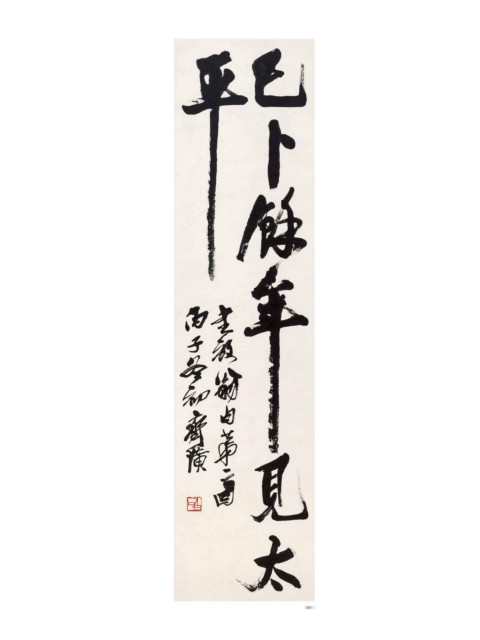 已卜餘年見太
平
書放翁句第二回
丙子冬初齊璜